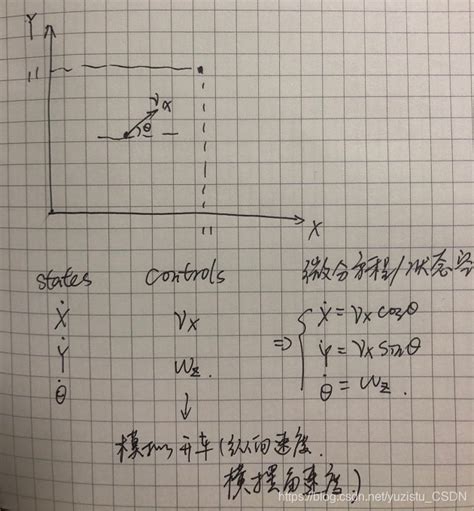 Y
11
Vx
θ
11
X
states controls 微分方程/状态空
Ẋ Vx Ẋ = Vx cosθ
Ẏ Wz. ⇒ Ẏ = Vx sinθ
θ̇ ↓ θ̇ = Wz.
模拟开车(纵向速度.
横摆角速度.)
https://blog.csdn.net/yuzistu_CSDN